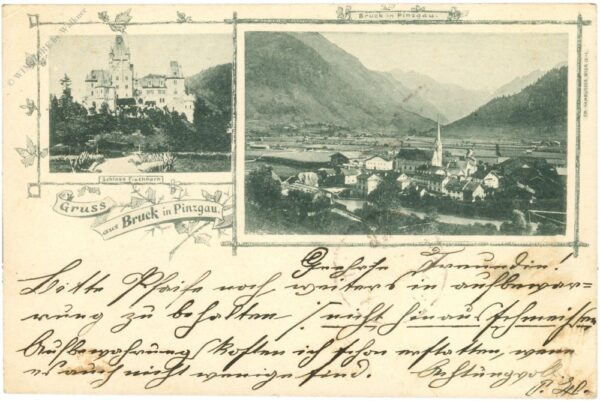 Bruck in Pinzgau.
Schloss Fischhorn
Gruss
aus Bruck in Pinzgau.
Geehrte Freundin!
Bitte Pfeife noch weiters in aufbewar-
rung zu behalten / nicht hinausschmeissen
Aufbewahrungskosten ich schon erstatten, wenn
es auch nicht wenige sind. Achtungvoll